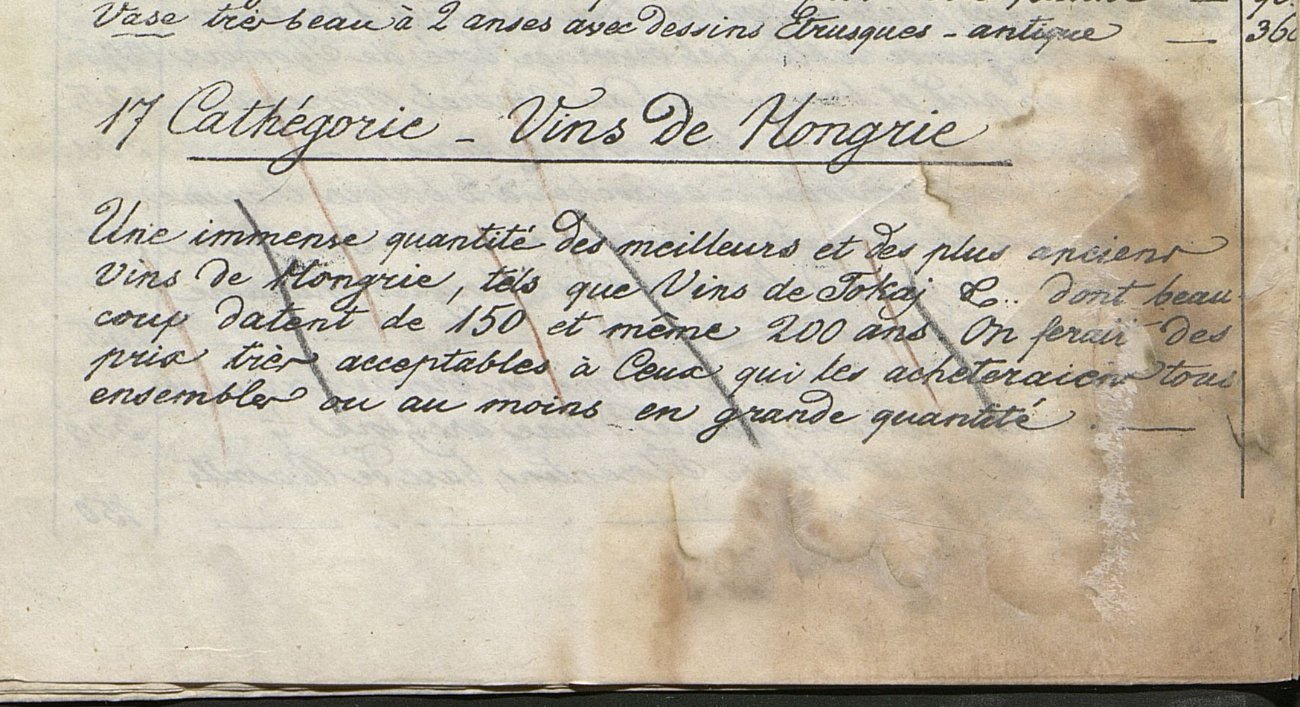 Vase très beau à 2 anses avec dessins Etrusques - antique — 360
17 Cathégorie - Vins de Hongrie
Une immense quantité des meilleurs et des plus anciens
vins de Hongrie, tels que Vins de Tokaj &.. dont beau-
coup datent de 150 et même 200 ans On ferait des
prix très acceptables à Ceux qui les acheteraient tous
ensembles ou au moins en grande quantité . —